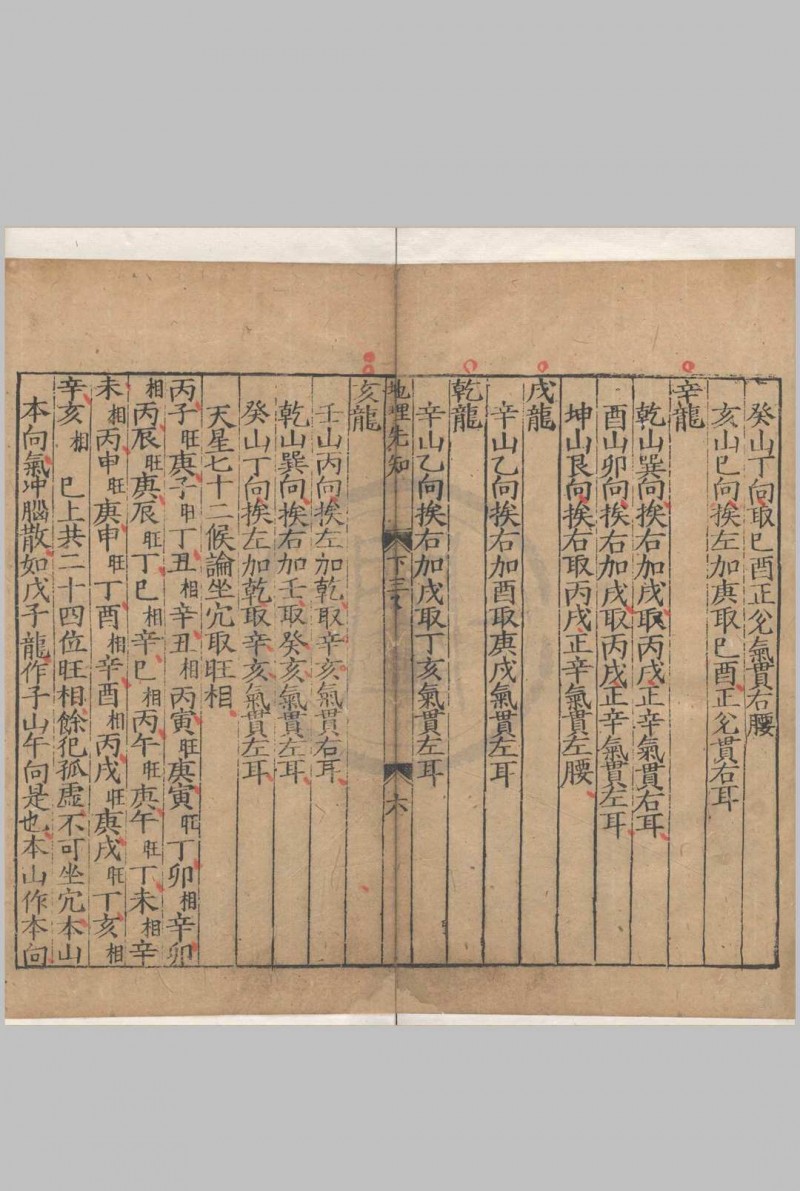 癸山丁向取巳酉正兊氣貫右腰
亥山巳向挨左加庚取巳酉正兊貫右耳
辛龍
乾山巽向挨右加戌取丙戌正辛氣貫右耳
酉山卯向挨右加戌取丙戌正辛氣貫左耳
坤山艮向挨右取丙戌正辛氣貫左腰
戌龍
辛山乙向挨右加酉取庚戌氣貫左耳
乾龍
辛山乙向挨右加戌取丁亥氣貫左耳
地理先知 下三 六
亥龍
壬山丙向挨左加乾取辛亥氣貫右耳
乾山巽向挨右加壬取癸亥氣貫左耳
癸山丁向挨左加乾取辛亥氣貫左耳
天星七十二候論坐穴取旺相
丙子旺庚子旺丁丑相辛丑相丙寅旺庚寅旺丁卯相辛卯
相丙辰旺庚辰旺丁巳相辛巳相丙午旺庚午旺丁未相辛
未相丙申旺庚申旺丁酉相辛酉相丙戌旺庚戌旺丁亥相
辛亥相 巳上共二十四位旺相餘犯孤虛不可坐穴本山
本向氣冲腦散如戊子龍作子山午向是也本山作本向